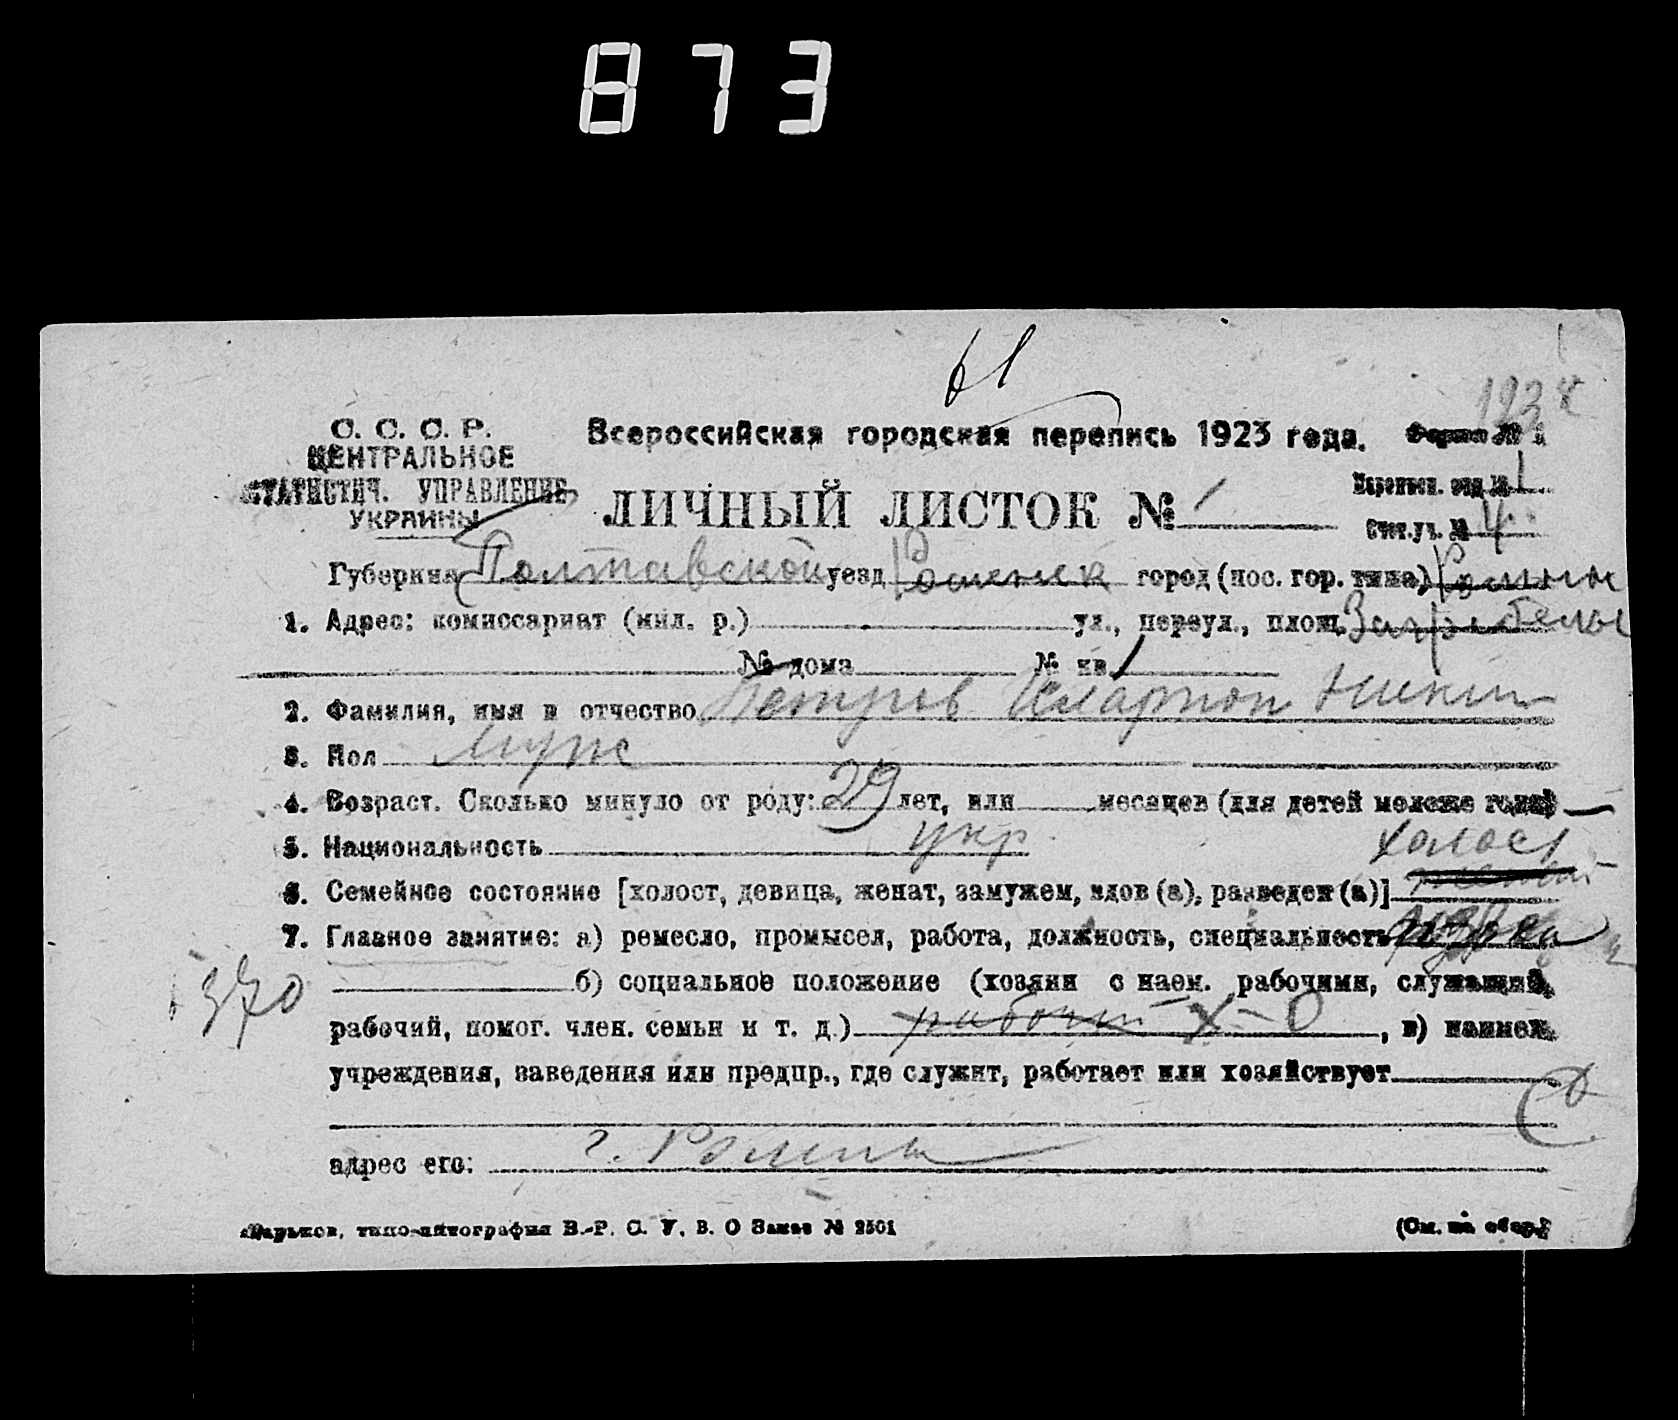 873
61
1923 г
С. С. С. Р.
ЦЕНТРАЛЬНОЕ
СТАТИСТИЧ. УПРАВЛЕНИЕ
УКРАИНЫ
Всероссийская городская перепись 1923 года.
Форма №
ЛИЧНЫЙ ЛИСТОК № 1
Переписн. отд. № 1
Счет. уч. № 4
Губерния Полтавской уезд Роменск город (пос. гор. типа) Ромны
1. Адрес: комиссариат (мил. р.) ул., переул., площ.
№ дома № кв. 1
2. Фамилия, имя и отчество Петров Иларион Никит
3. Пол муж
4. Возраст. Сколько минуло от роду: 29 лет, или месяцев (для детей моложе года)
5. Национальность укр.
холост
6. Семейное состояние [холост, девица, женат, замужем, вдов (а), разведен (а)]
7. Главное занятие: а) ремесло, промысел, работа, должность, специальность
370
б) социальное положение (хозяин с наем. рабочими, служащий,
рабочий, помог. член. семьи и т. д.) рабочий Х-О, в) наимен.
учреждения, заведения или предпр., где служит, работает или хозяйствует
адрес его: г. Ромны
Харьков, типо-литография В.-Р. С. У. В. О Заказ № 2501
(См. на обор.)